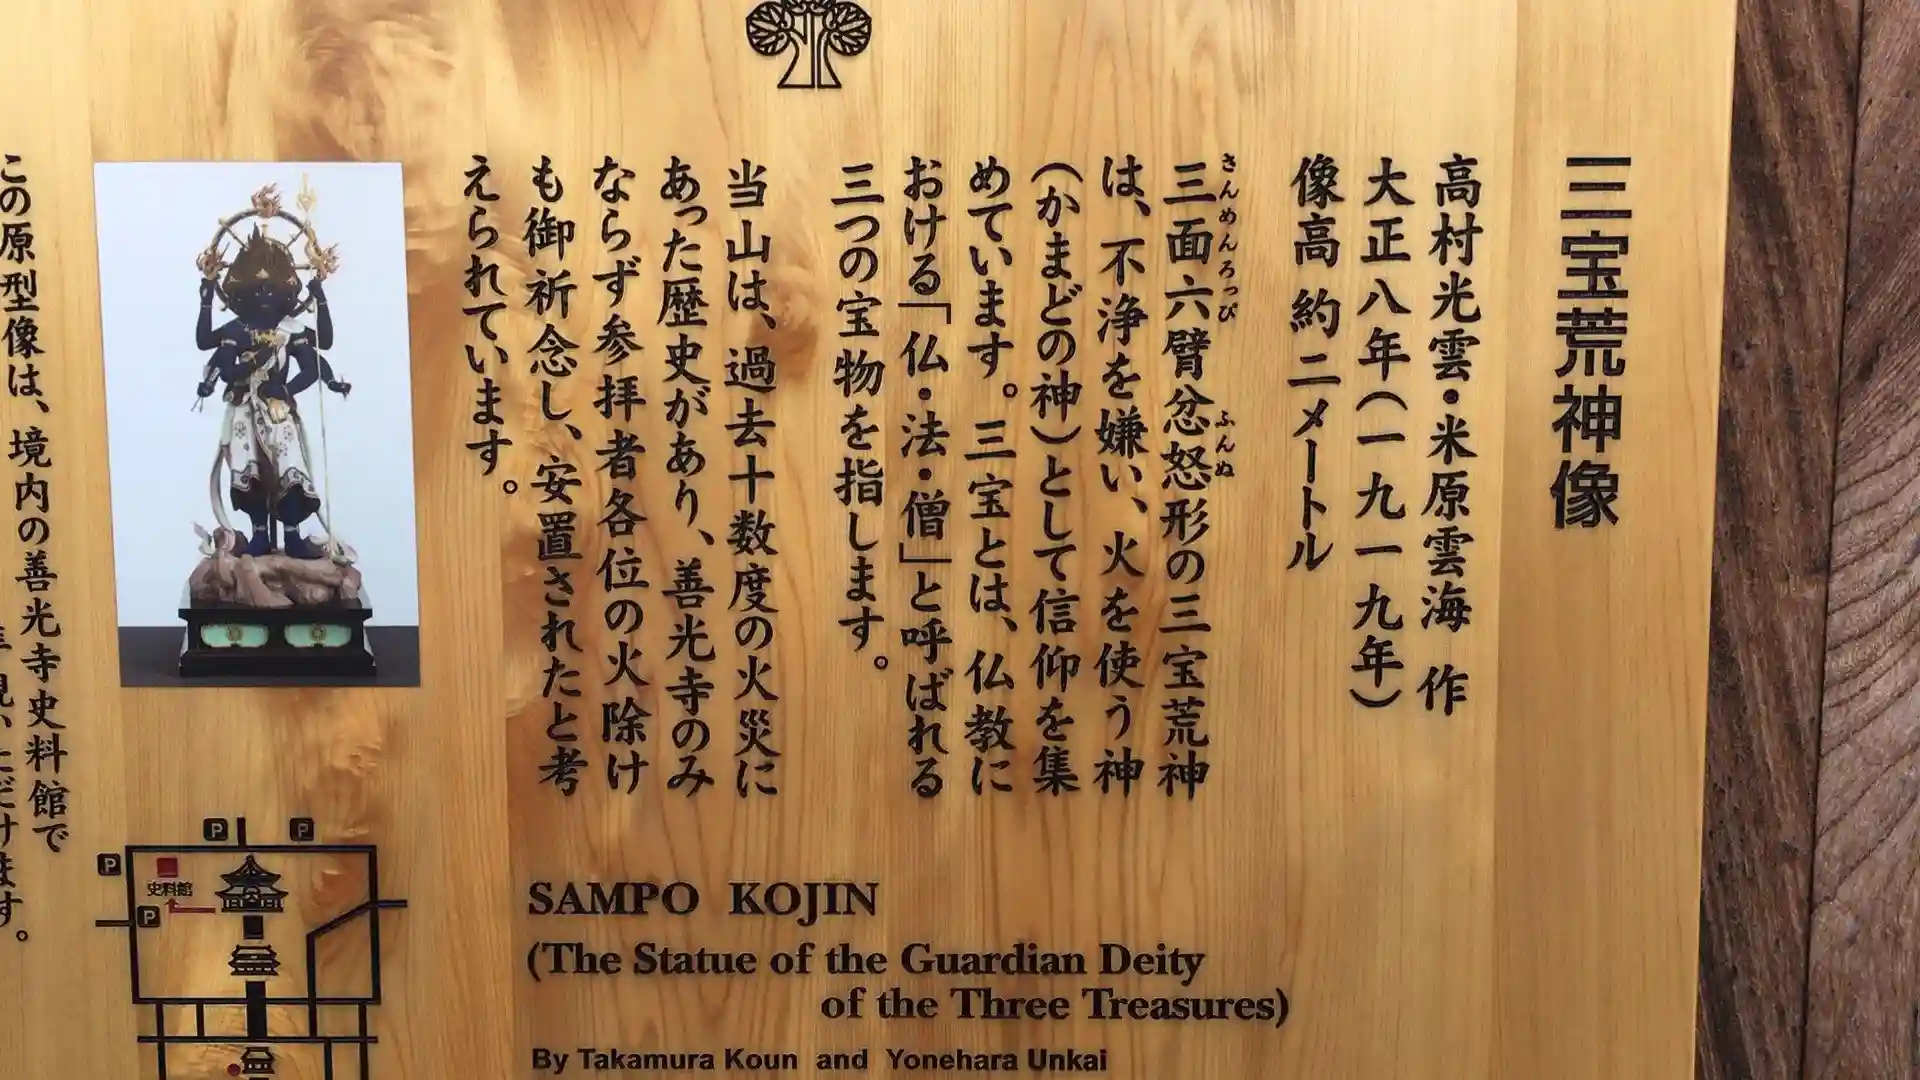 三宝荒神像
高村光雲・米原雲海 作
大正八年(一九一九年)
像高 約二メートル
さんめんろっぴ ふんぬ
三面六臂忿怒形の三宝荒神
は、不浄を嫌い、火を使う神
(かまどの神)として信仰を集
めています。三宝とは、仏教に
おける「仏・法・僧」と呼ばれる
三つの宝物を指します。
当山は、過去十数度の火災に
あった歴史があり、善光寺のみ
ならず参拝者各位の火除け
も御祈念し、安置されたと考
えられています。
この原型像は、境内の善光寺史料館で
だけます。
P P
P
史料館
P
SAMPO KOJIN
(The Statue of the Guardian Deity
of the Three Treasures)
By Takamura Koun and Yonehara Unkai